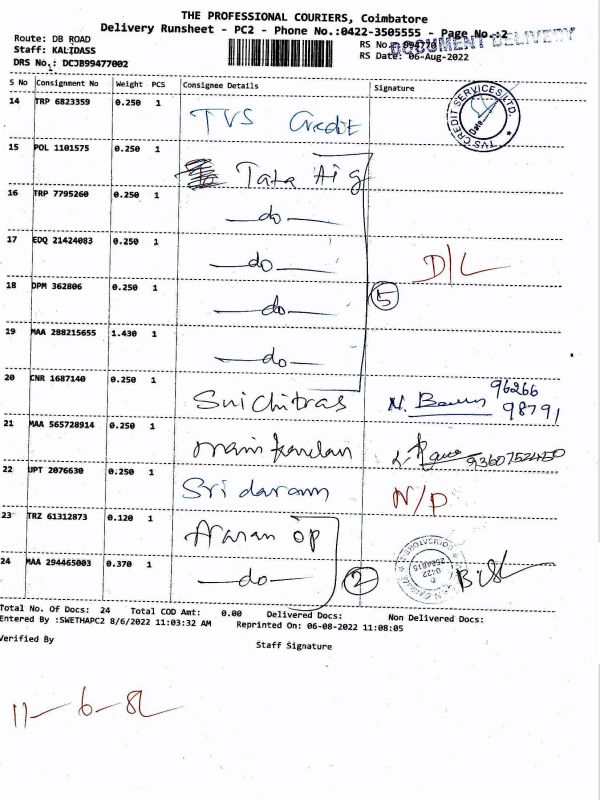 THE PROFESSIONAL COURIERS, Coimbatore
Delivery Runsheet - PC2 - Phone No.:0422-3505555 - Page No.:2
Route: DB ROAD
Staff: KALIDASS
DRS No.: DCJB99477002
RS No.: 994770
DOCUMENT DELIVERY
RS Date: 06-Aug-2022
S No Consignment No Weight PCS Consignee Details Signature
14 TRP 6823359 0.250 1 TVS Credit
TVS CREDIT SERVICES LTD. Date
15 POL 1101575 0.250 1 Tata Aig
16 TRP 7795260 0.250 1 —do—
17 EDQ 21424083 0.250 1 —do— D/L
18 DPM 362806 0.250 1 —do— 5
19 MAA 288215655 1.430 1 —do—
20 CNR 1687140 0.250 1 Suichitras N. 96266
98791
21 MAA 565728914 0.250 1 manikandan 9360752450
22 UPT 2076630 0.250 1 Sri daram N/P
23 TRZ 61312873 0.120 1 Aaran op
24 MAA 294465003 0.370 1 —do— 2
Total No. Of Docs: 24 Total COD Amt: 0.00 Delivered Docs: Non Delivered Docs:
Entered By :SWETHAPC2 8/6/2022 11:03:32 AM Reprinted On: 06-08-2022 11:08:05
Verified By Staff Signature
11— 6—